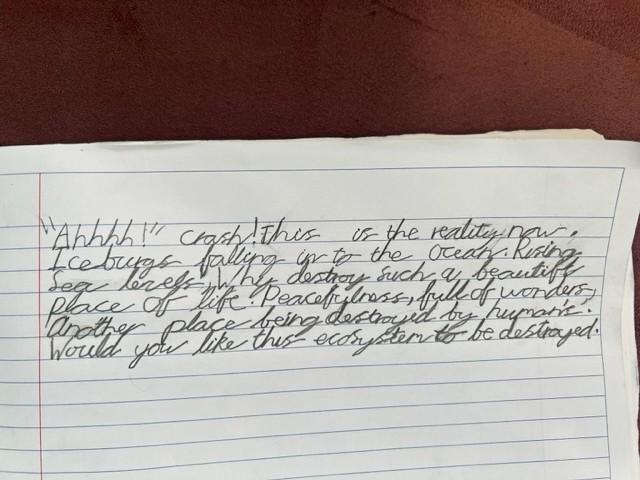 "Ahhhh!" crash! This is the reality now.
Iceburgs falling in to the Ocean. Rising
Sea levels, Why destroy such a beautiful
place of life Peacefulness, full of wonders,
another place being destroyed by humans.
Would you like this ecosystem to be destroyed.